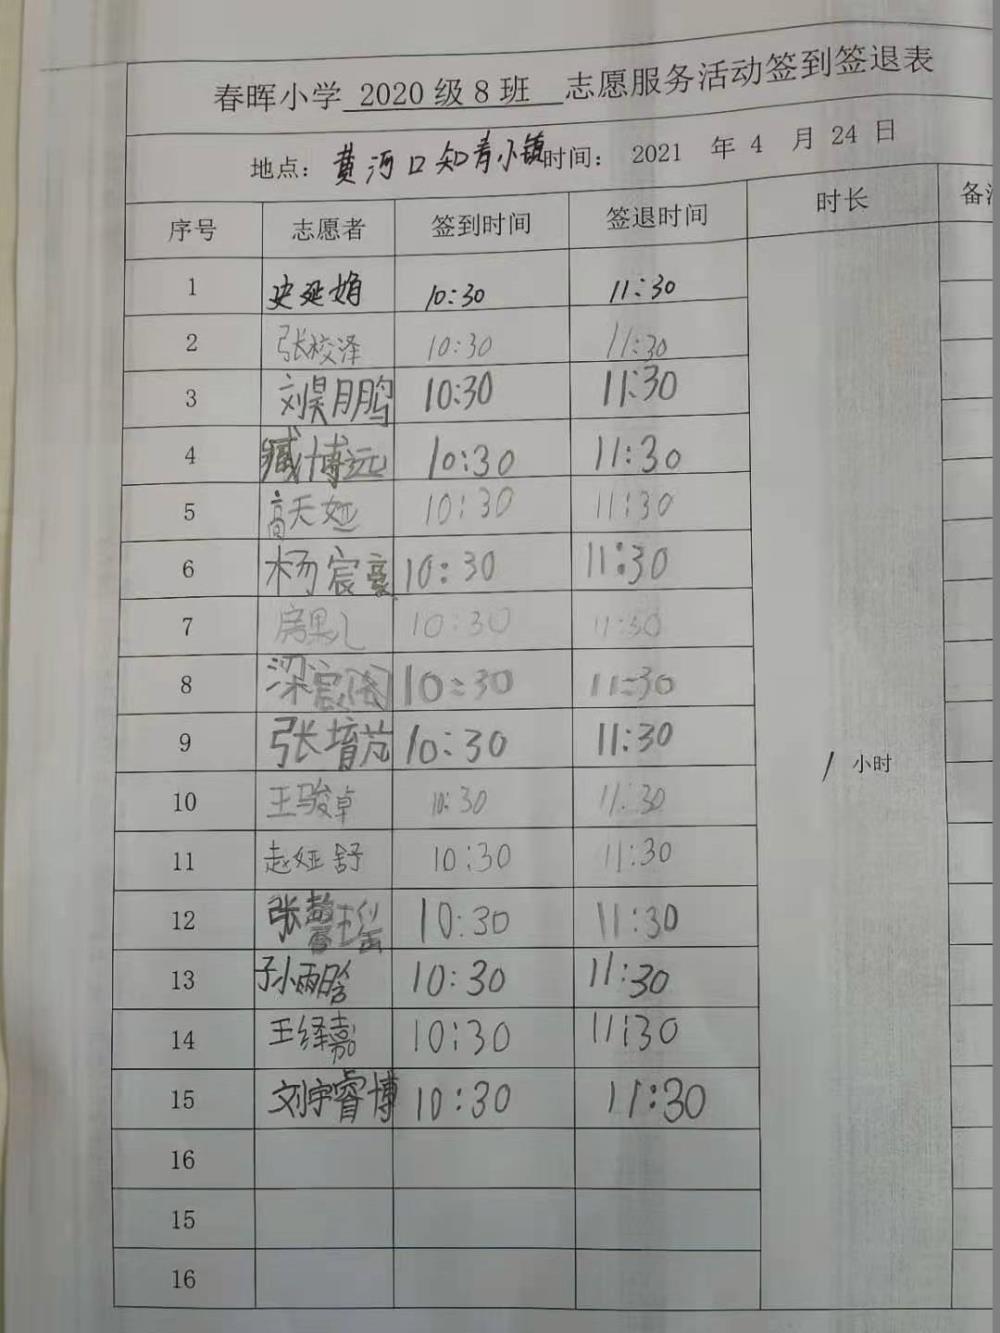 春晖小学 2020级8班 志愿服务活动签到签退表
地点：黄河口知青小镇 时间：2021 年 4 月 24 日
序号 志愿者 签到时间 签退时间 时长 备
1 史延娟 10:30 11:30
2 张校泽 10:30 11:30
3 刘昊鹏 10:30 11:30
4 臧博远 10:30 11:30
5 高天娅 10:30 11:30
6 杨宸豪 10:30 11:30
7 房果儿 10:30 11:30
8 梁宸 10:30 11:30
9 张堉芯 10:30 11:30
1 小时
10 王骏卓 10:30 11:30
11 赵娅舒 10:30 11:30
12 张馨瑶 10:30 11:30
13 孙雨晗 10:30 11:30
14 王绎嘉 10:30 11:30
15 刘宇睿博 10:30 11:30
16
15
16